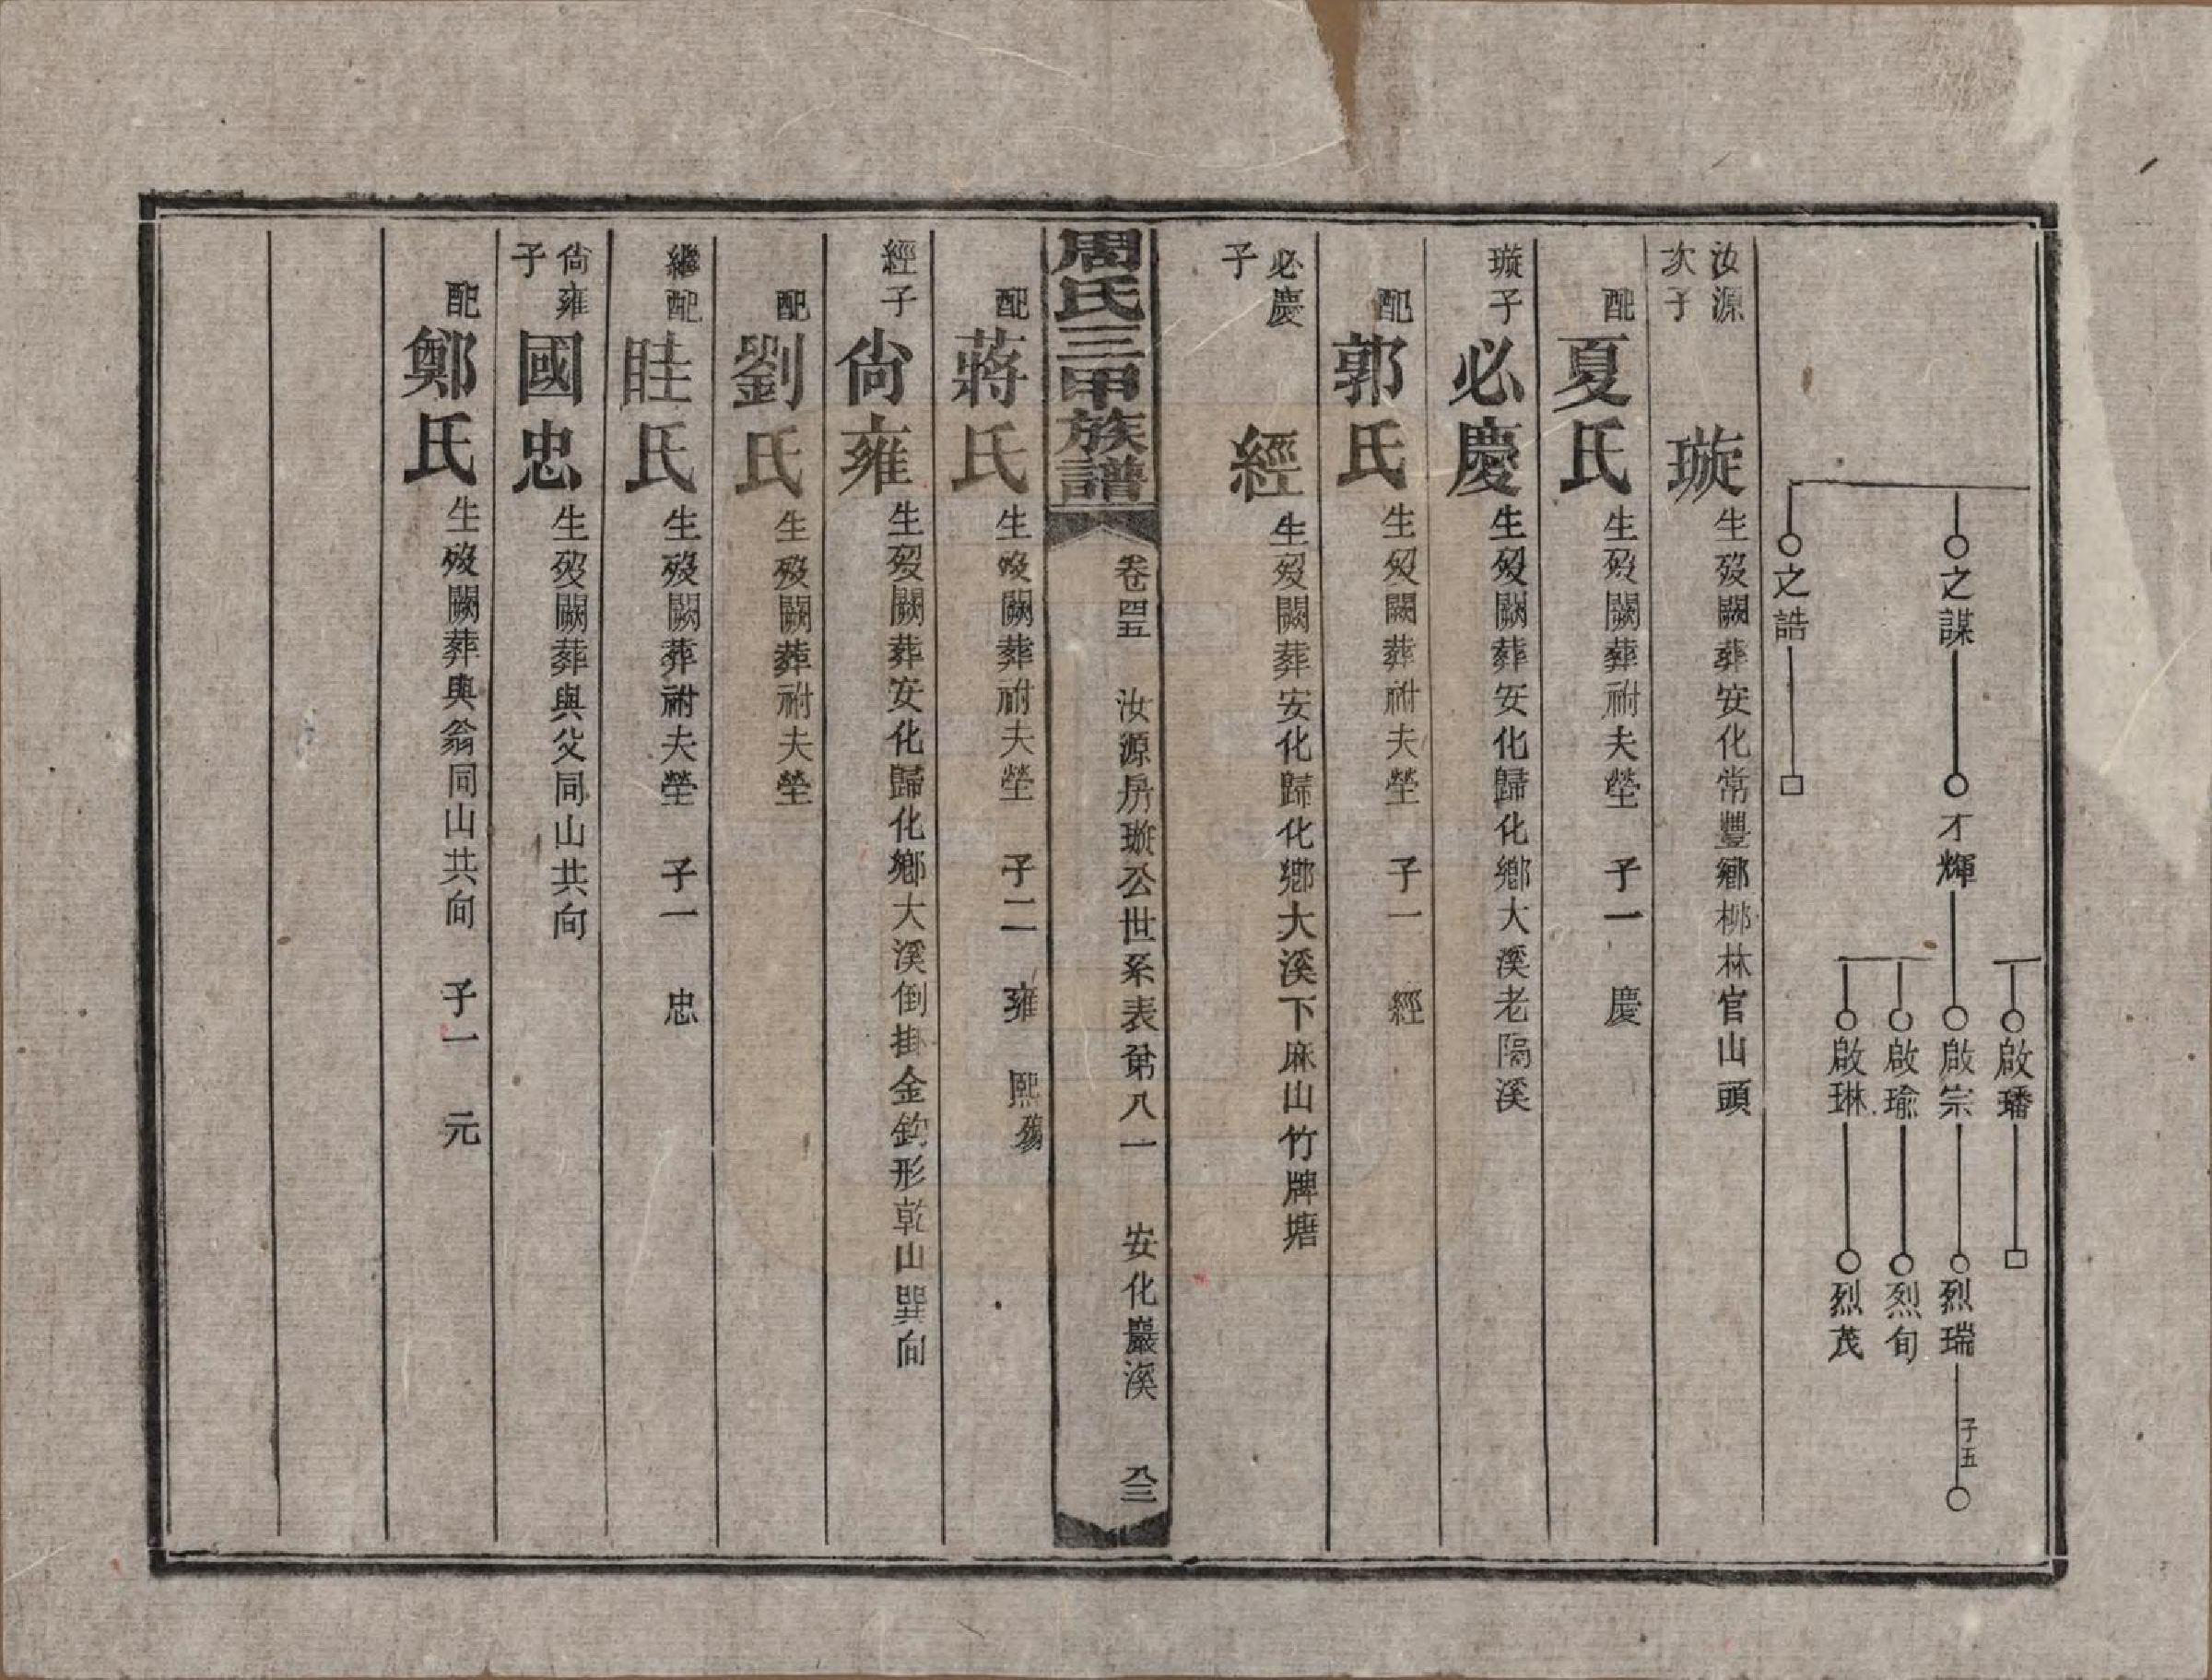 啟璠
之謀　才輝　啟宗　烈瑞　子五
啟瑜　烈旬
啟琳　烈茂
之誥
汝源次子　璇　生歿闕葬安化常豐鄉柳林官山頭
配　夏氏　生歿闕葬祔夫塋　子一　慶
璇子　必慶　生歿闕葬安化歸化鄉大溪老隔溪
配　郭氏　生歿闕葬祔夫塋　子一　經
必慶子　經　生歿闕葬安化歸化鄉大溪下麻山竹牌塘
周氏三甲族譜　卷四五　汝源房璇公世系表第八一　安化巖溪　八三
配　蔣氏　生歿闕葬祔夫塋　子二　雍　熙殤
經子　尙雍　生歿闕葬安化歸化鄉大溪倒掛金鈎形乾山巽向
配　劉氏　生歿闕葬祔夫塋
繼配　眭氏　生歿闕葬祔夫塋　子一　忠
尙雍子　國忠　生歿闕葬與父同山共向
配　鄭氏　生歿闕葬與翁同山共向　子一　元